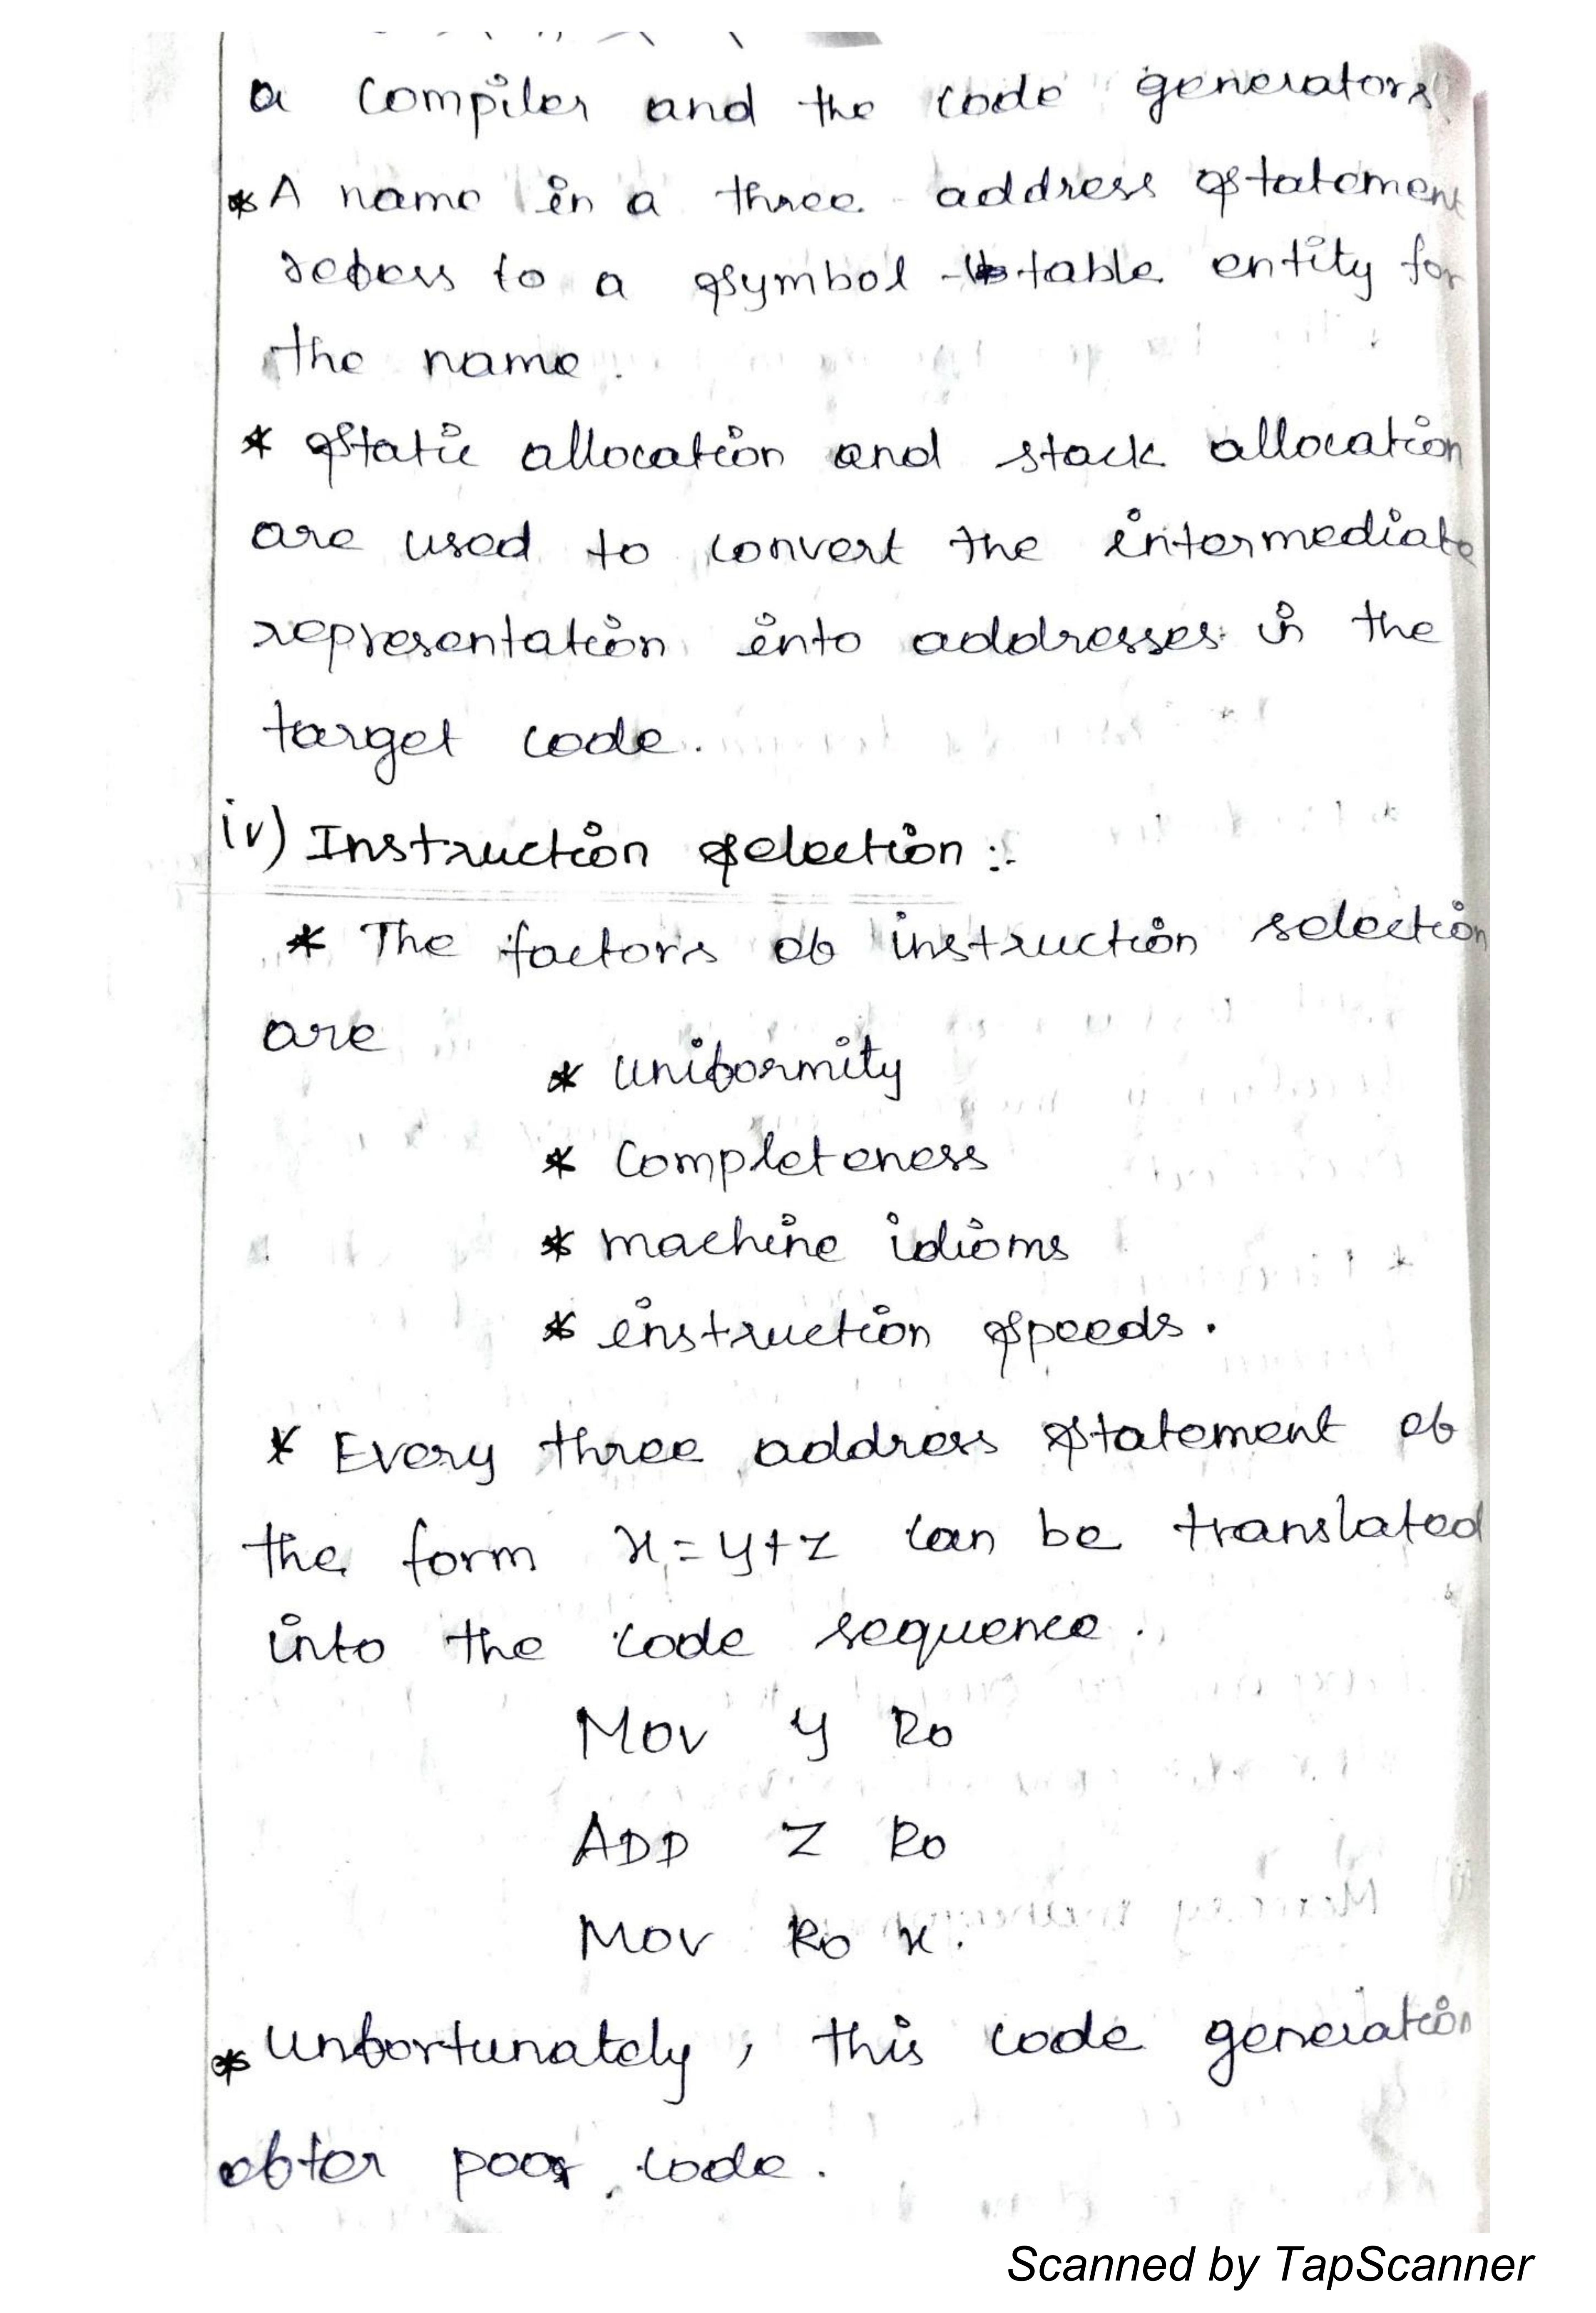 a compiler and the code generators
* A name in a three address statement
refers to a symbol - table entity for
the name.
* Static allocation and stack allocation
are used to convert the intermediate
representation into addresses in the
target code.
iv) Instruction selection :-
* The factors of instruction selection
are
* uniformity
* completeness
* machine idioms
* instruction speeds.
* Every three address statement of
the form x = y + z can be translated
into the code sequence.
MOV y R0
ADD z R0
MOV R0 x.
* Unfortunately, this code generation
ofter poor code.
Scanned by TapScanner